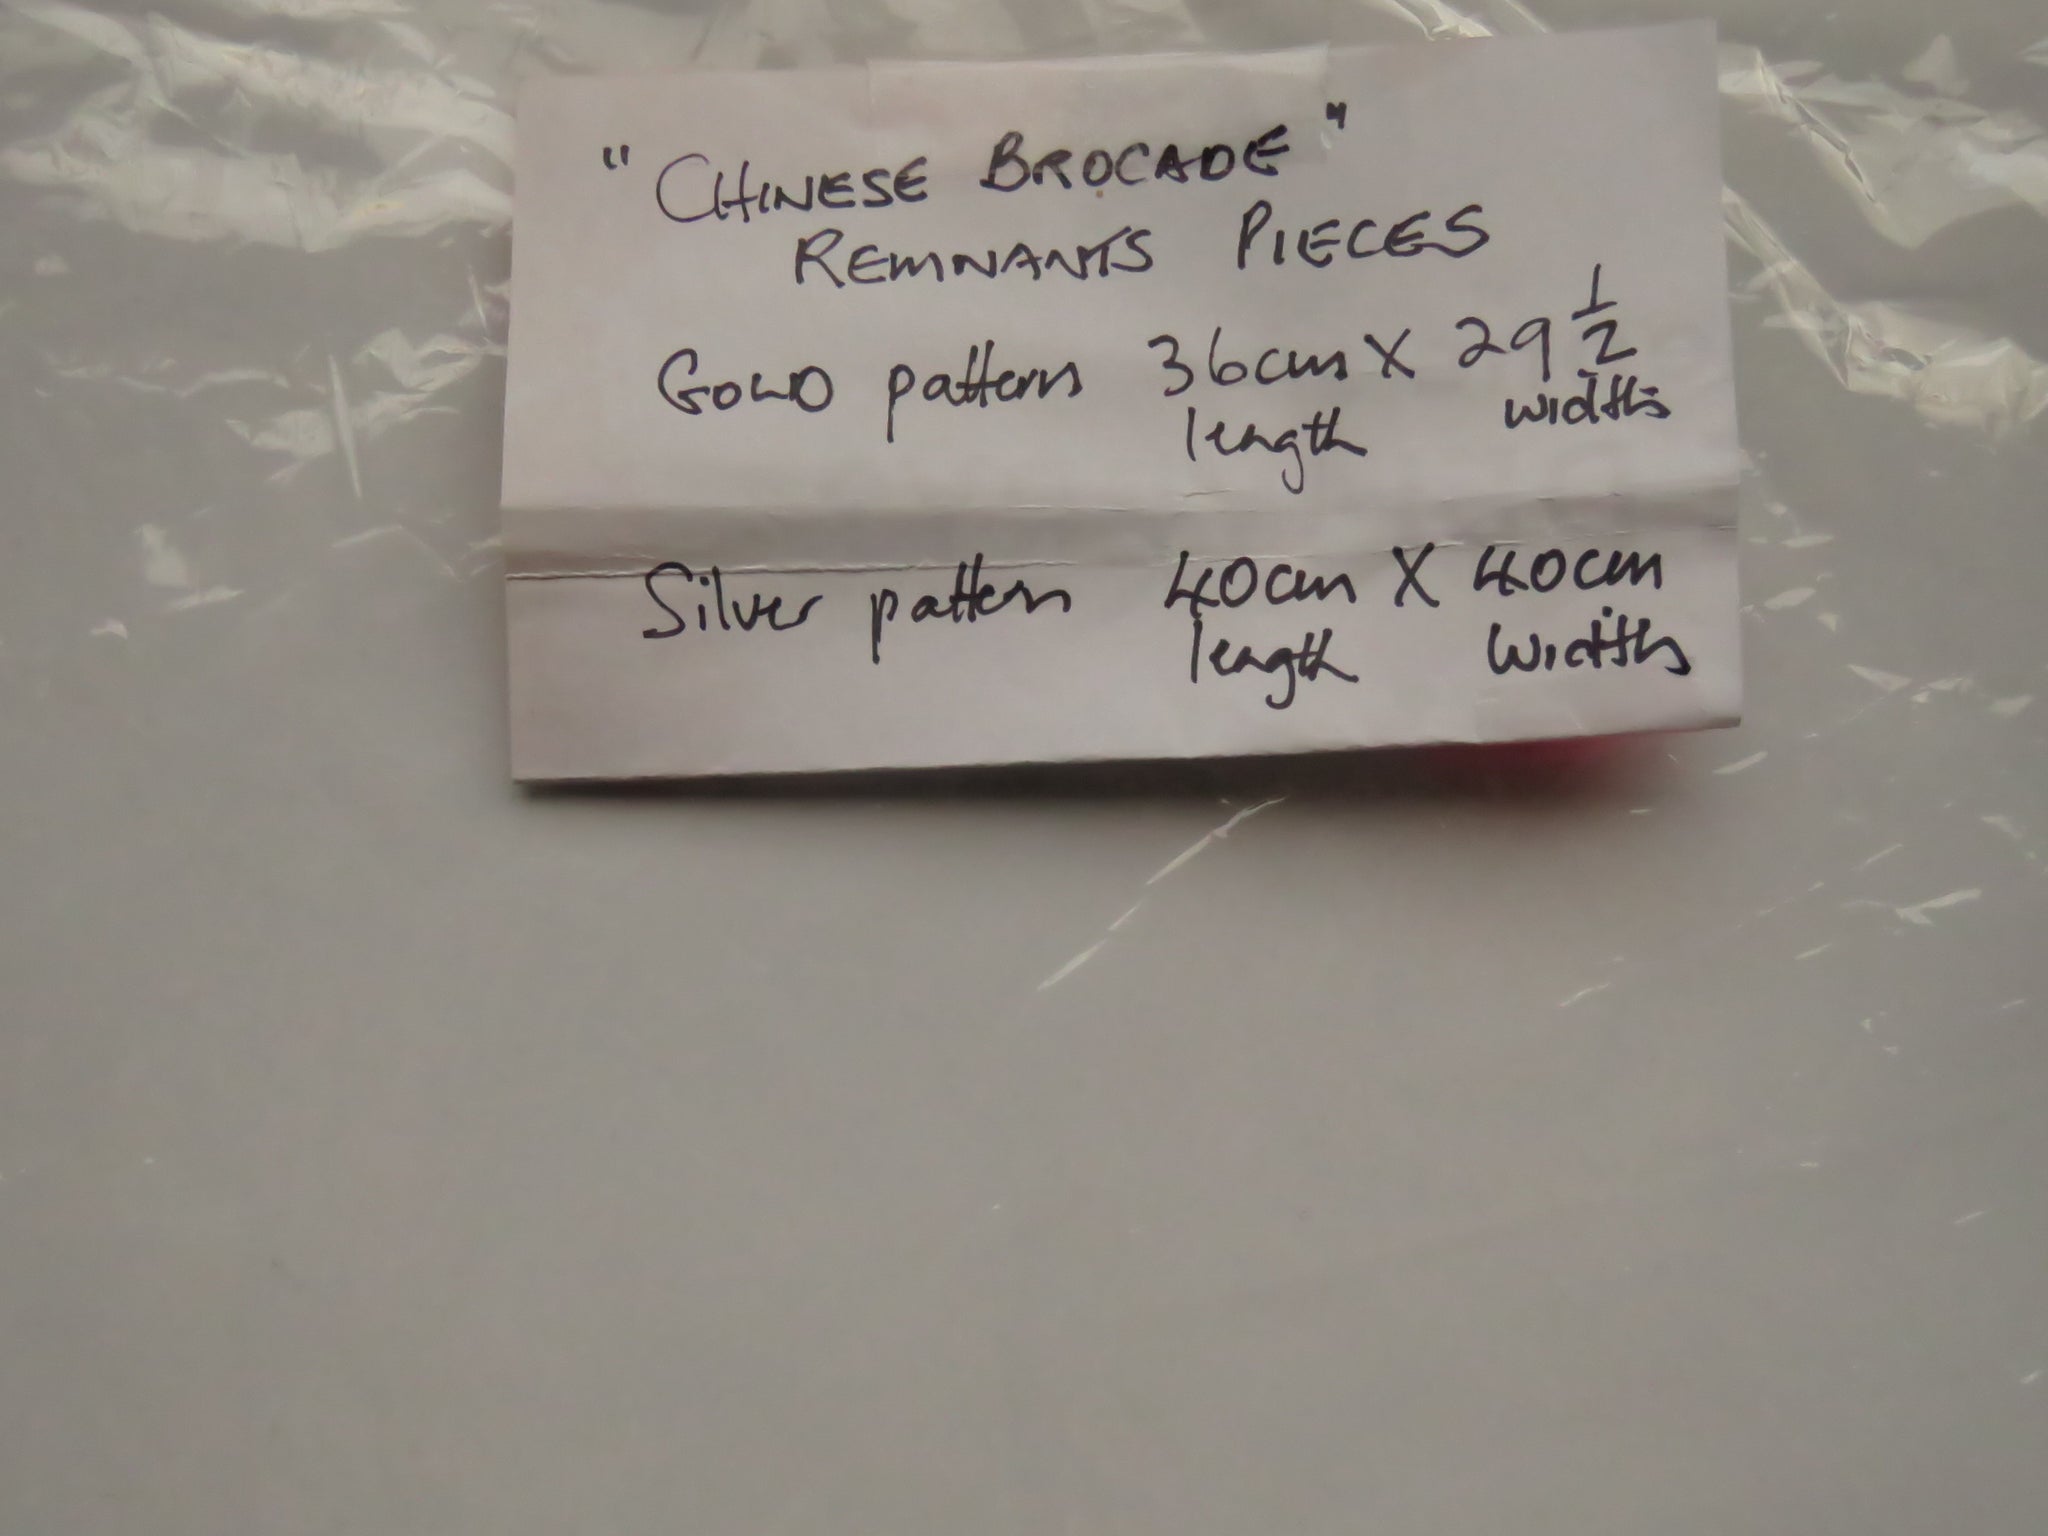 "CHINESE BROCADE"
REMNANTS PIECES
GOLD pattern 36cm X 29 1/2
length widths
Silver pattern 40cm X 40cm
length widths